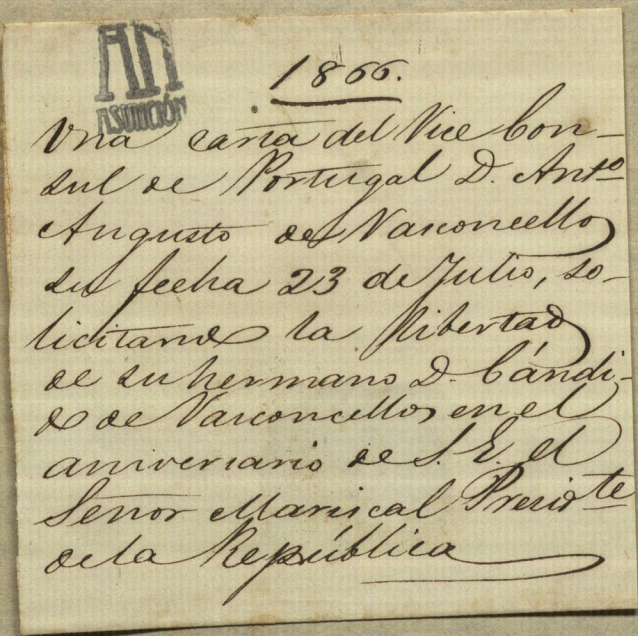 AN
ASUNCIÓN
1866.
Una carta del Vice Con-
sul de Portugal D. Antº
Augusto de Vasconcellos
su fecha 23 de Julio, so-
licitando la libertad
de su hermano D. Cándi-
do de Vasconcellos en el
aniversario de S. E. el
Señor Mariscal Presidte
de la República